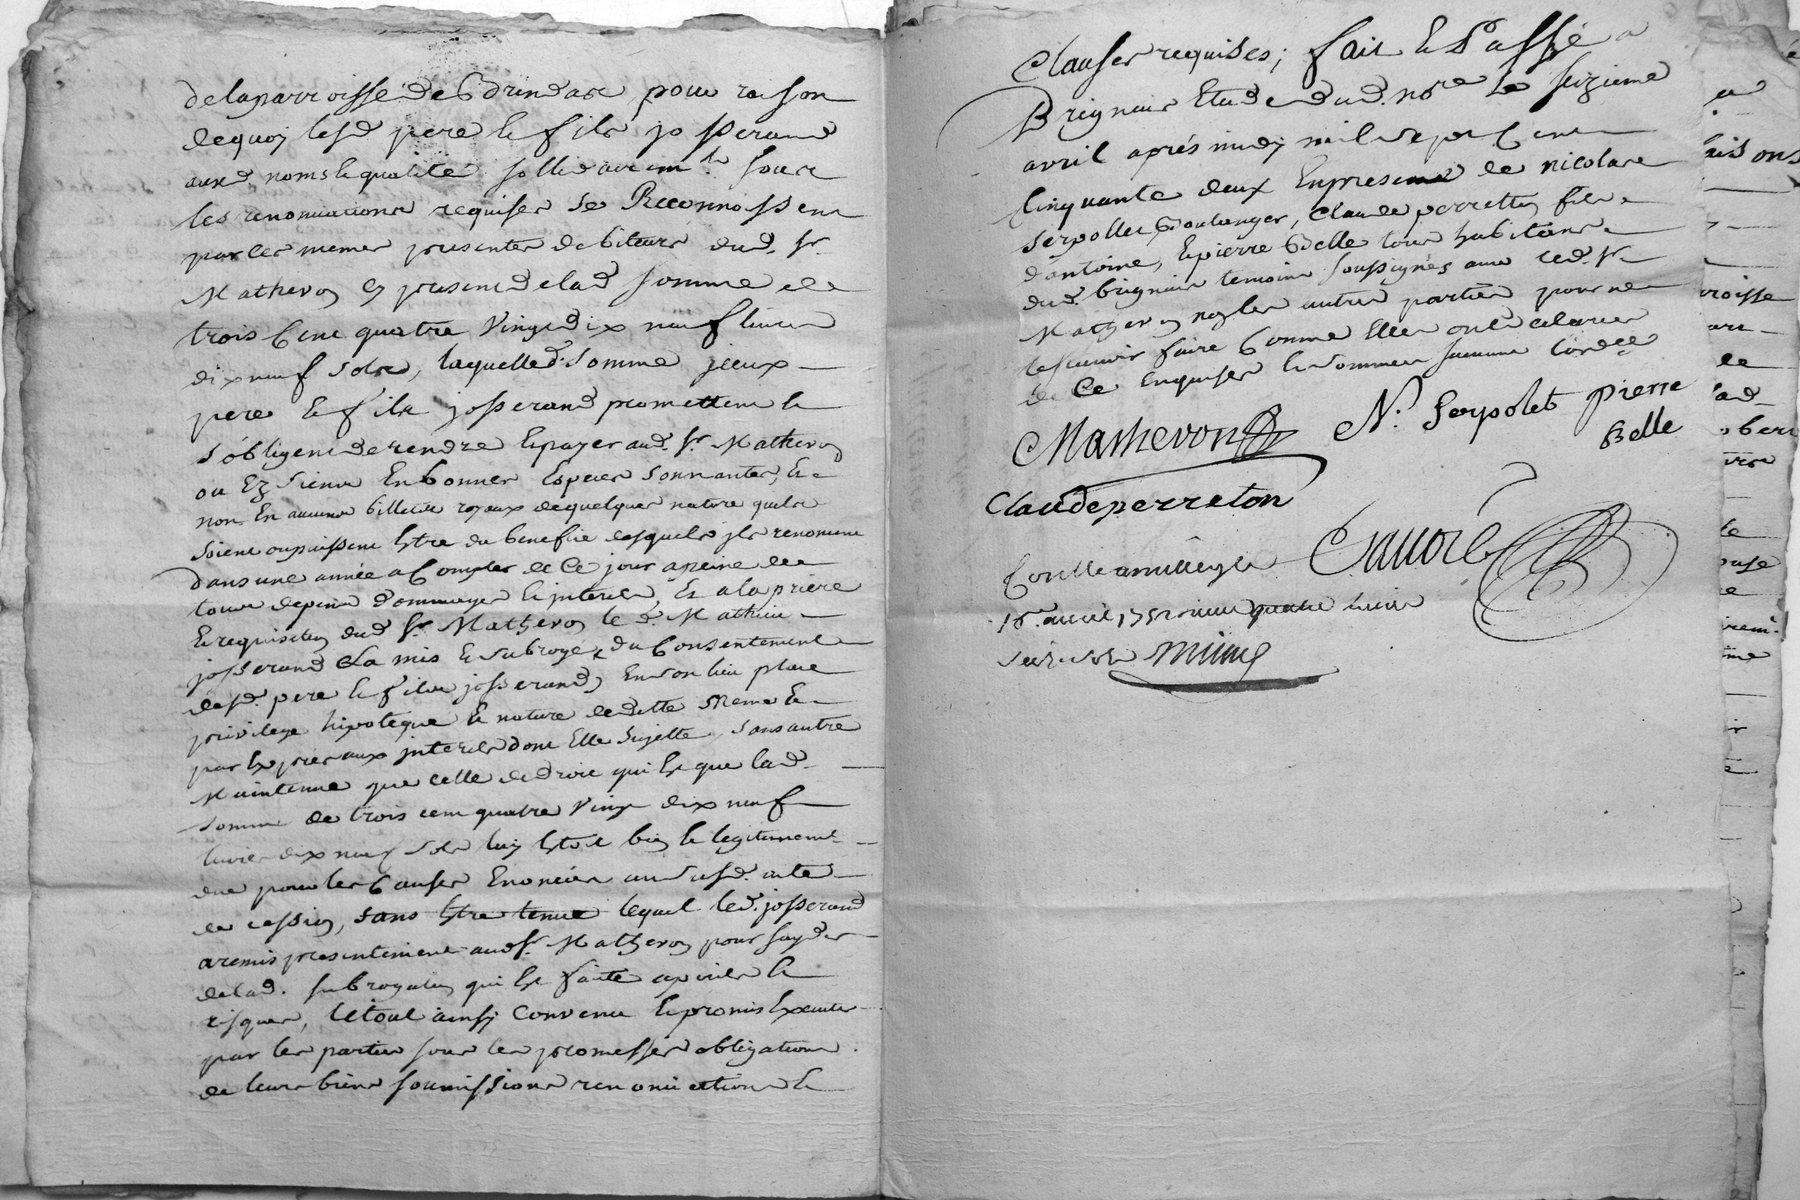 de la parroisse de Brindas pour raison
de quoy lesd. pere et fils josserand
auxd. noms et qualité sollidairem.t sous
les renonciations requises se Reconnoissent
par ces memes presentes debiteurs dud. sr.
Matheron cy present de lad. somme de
trois Cent quatre Vingt dix neuf livres
dix neuf sols, laquelle d. somme jceux
pere et fils josserand promettent et
s'obligent de rendre et payer aud. sr. Matheron
ou Ez siens En bonnes Especes sonnantes, Et
non En aucuns billets royaux de quelques nature quils
soient ou puissent Estre du benefice desquels jls renoncent
dans une année a Compter de Ce jour a peine de
tous depens dommages et jnterets, Et a la priere
Et requisition dud. sr. Matheron le d. Mathieu
josserand La mis et subrogé, du Consentement
desd. pere et fils josserand, En son lieu place
privilege hipoteque et nature de dette Meme Et
par Exprès aux jnterets dont Elle Sujette, sans autre
Maintenue que celle de droit qui Est que lad.
somme de trois cent quatre Vingt dix neuf
livres dix neuf sols luy Estoit bien et legitimement
due pour les Causes Enoncées au susd. acte
de cession, sans Estre tenue lequel led. josserand
a remis presentement aud. sr. Matheron pour s'ayder
de lad. subrogation qui Est faite a perils et
risques, le tout ainsy convenu et promis Executer
par les parties sous les promesses obligations
de leurs biens soumissions renonciations et
Clauses requises; fait et Passé a
Brignais Etude dud. nore. le seizieme
avril aprés midy mil sept Cent
Cinquante deux En presence de nicolas
serpollet Boulanger, Claude perretton fils
d'antoine, et pierre Belle tous habitans
dud. brignais temoins soussignés avec led. sr.
Matheron non les autres parties pour ne
le scavoir faire Comme Elles ont declarés
de Ce Enquises et sommées suivant l'ord.ce
Matheron N. Serpolet pierre
Belle
Claude perreton
Controllé a
16e. avril 1752 reçu quatre livres
sols